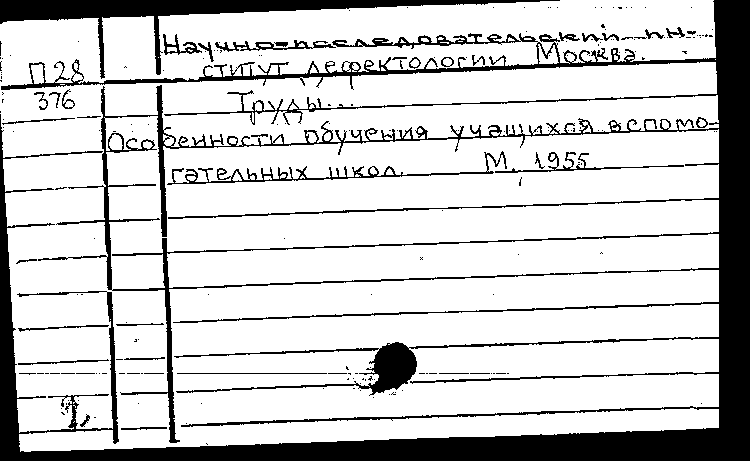 Научно-исследовательский ин-
П28 ститут дефектологии. Москва.
376 Труды...
Особенности обучения учащихся вспомо-
гательных школ. М. 1955